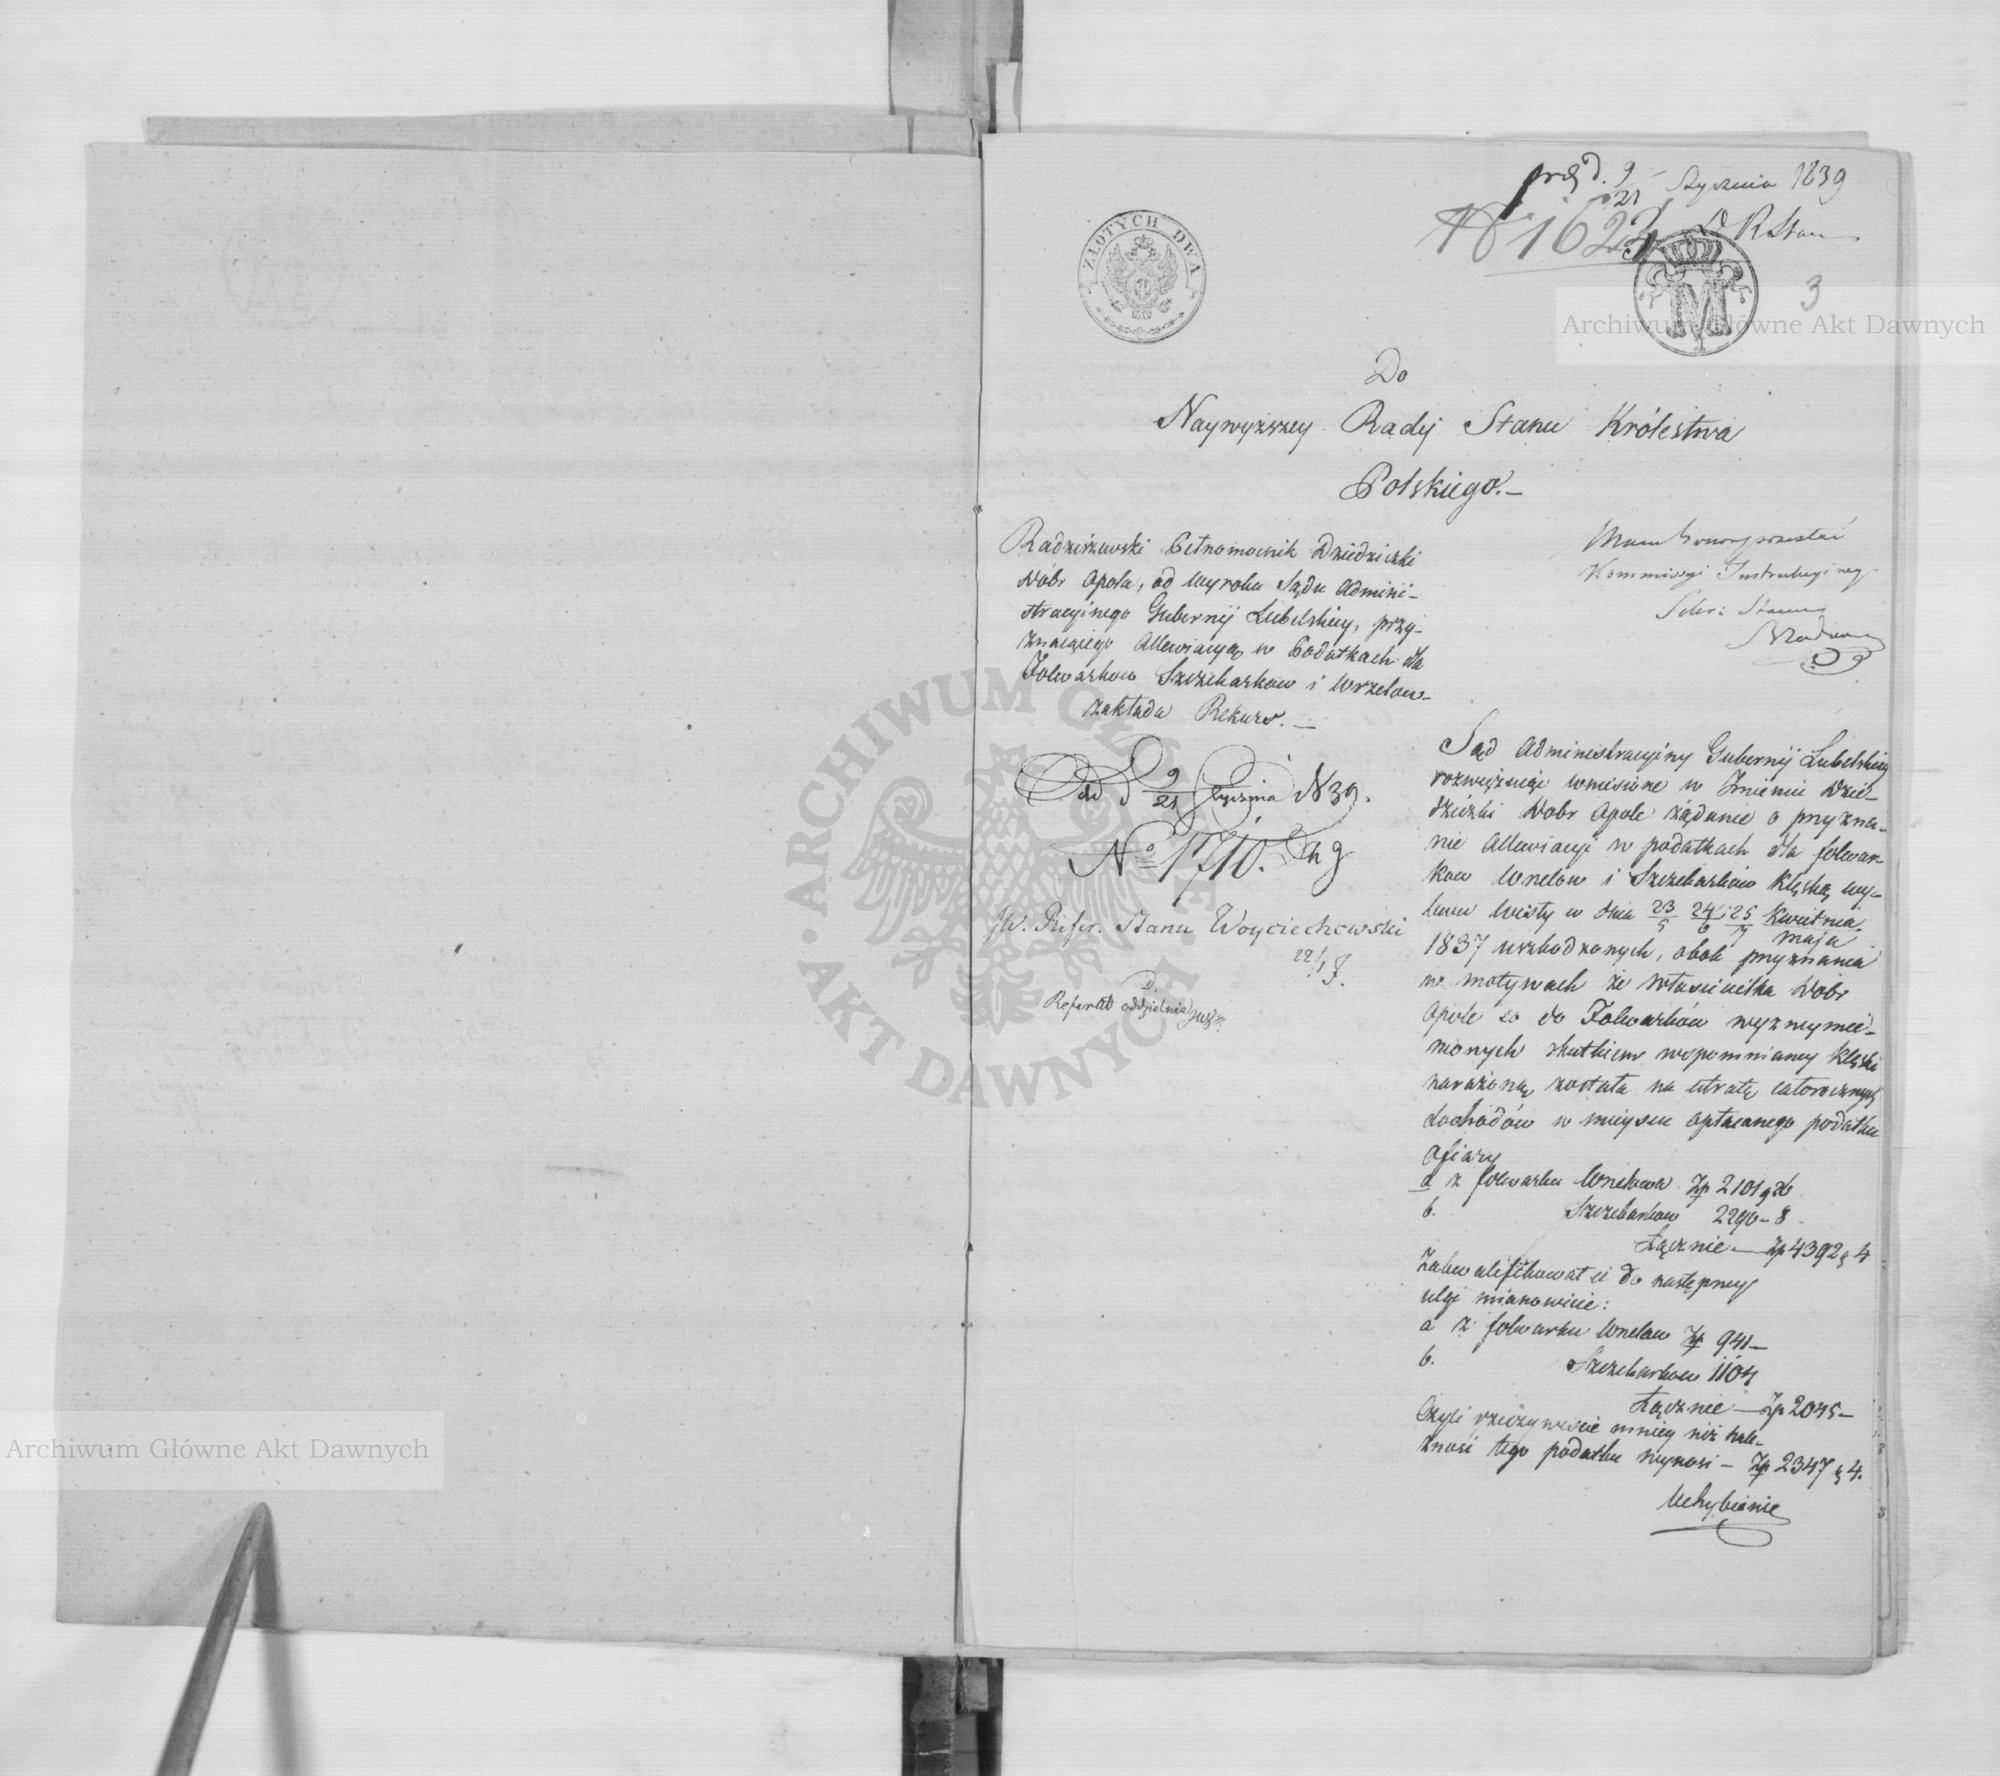 prez d. 9/21 Stycznia 1839
N 1622 D R Stan
ZŁOTYCH DWA
M
3
Archiwum Główne Akt Dawnych
Do
Naywyższey Rady Stanu Królestwa
Polskiego.—
Radziszewski Pełnomocnik Dziedziczki
Dóbr Opola, od wyroku Sądu Admini-
stracyinego Gubernij Lubelskiey, przy-
znaiącego Allewiacyą w Podatkach dla
Folwarków Szczekarkow i Wrzelow-
zakłada Rekurs.—
Kommissyi Instrukcyiney
Sekr: Stanu
dd 9/21 Stycznia N 39.
No 1710.
JW. Refer. Stanu Woyciechowski
22/1
D.
Referat oddzielnie
Sąd Administracyiny Gubernij Lubelskiey
rozwięzuiąc wniesione w Imieniu Dzie-
dziczki Dobr Opole żądanie o przyzna-
nie Allewiacyi w podatkach dla folwar-
kow Wrzelow i Szczekarków klęską wy-
lewu Wisły w dnia 23/5 24/6 i 25/7 Kwietnia/maja
1837 uszkodzonych, obok przyznania
w motywach że właścicielka Dobr
Opole co do Folwarków wyżwymie-
nionych skutkiem wspomnianey klęski
narażoną została na utratę całorocznych
dochodów w mieysce opłacanego podatku
ofiary
a z folwarku Wrzelowa Zp 2101 g 26
b. Szczekarkow 2290 – 8
Łącznie — Zp 4392 g 4
Zakwalifikował ie do następney
ulgi mianowicie:
a z folwarku Wrzelow Zp 941 —
b. Szczekarkow 1104
Łącznie — Zp 2045 —
Czyli rzeczywiście mniey niż nale-
żność tego podatku wynosi — Zp 2347 g 4.
Uchybienie
ARCHIWUM GŁÓWNE · AKT DAWNYCH ·
Archiwum Główne Akt Dawnych